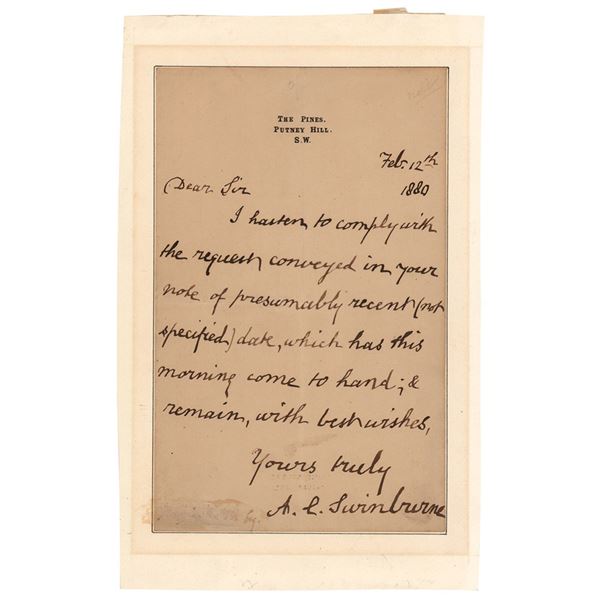 The Pines.
Putney Hill.
S.W.
Feb. 12th
1880
Dear Sir
I hasten to comply with
the request conveyed in your
note of presumably recent (not
specified) date, which has this
morning come to hand; &
remain, with best wishes,
Yours truly
A. C. Swinburne